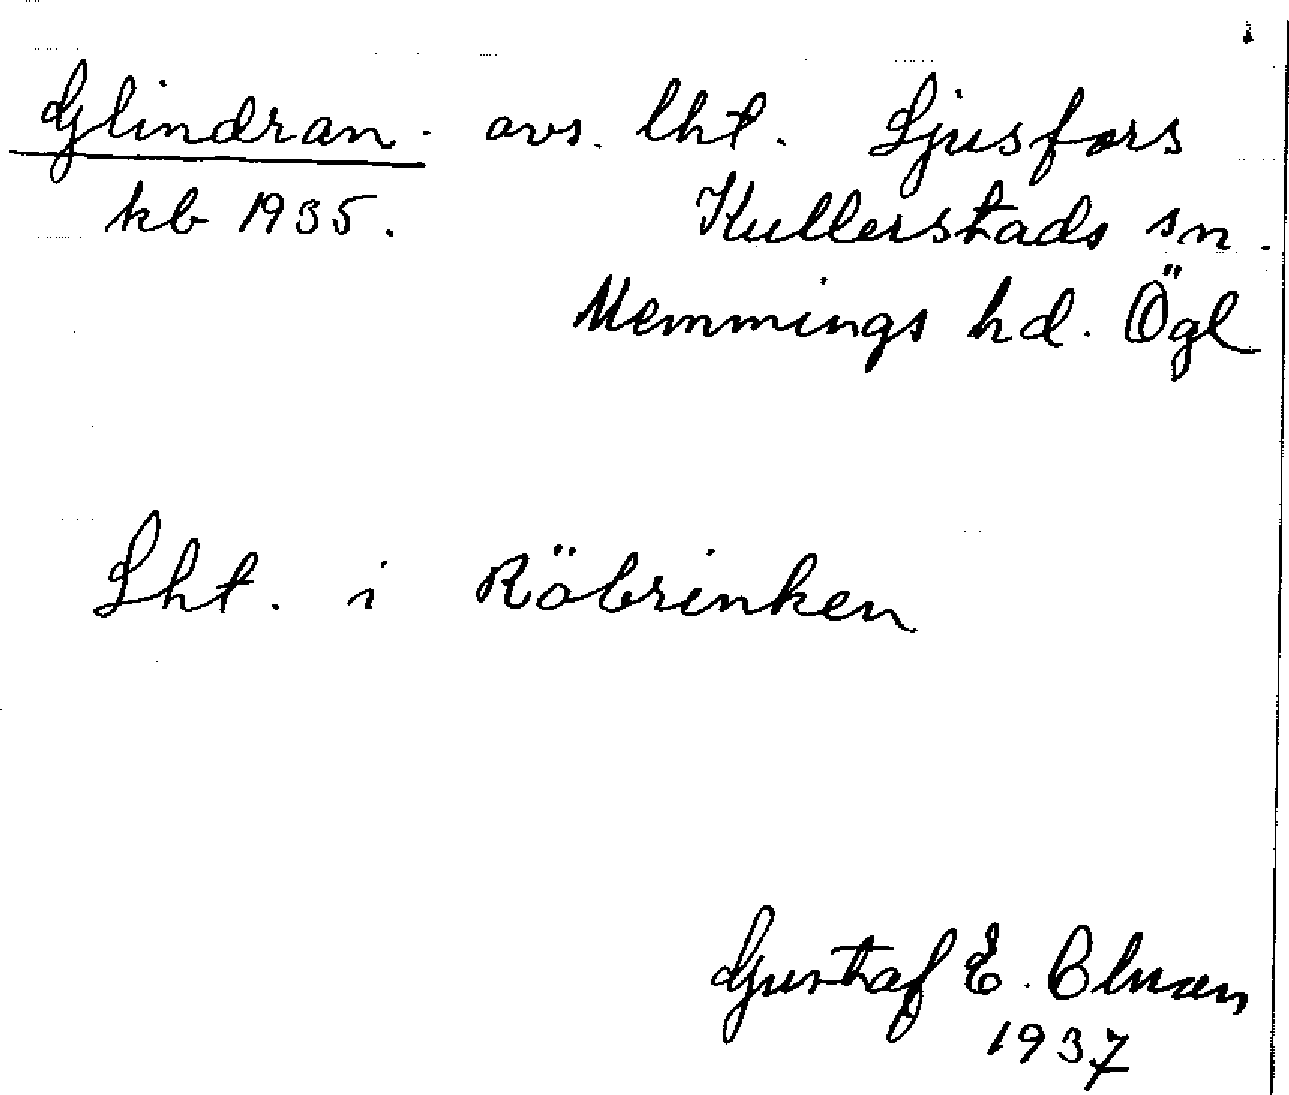 Glindran. avs. lht. Ljusfors
kb 1935. Kullerstads sn.
Memmings hd. Ögl
Lht. i Röbrinken
Gustaf E.
1937